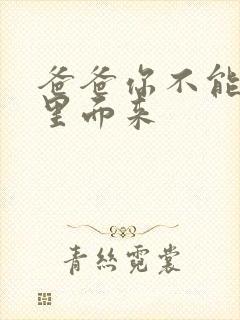 爸爸你不能
里而来
青丝霓裳